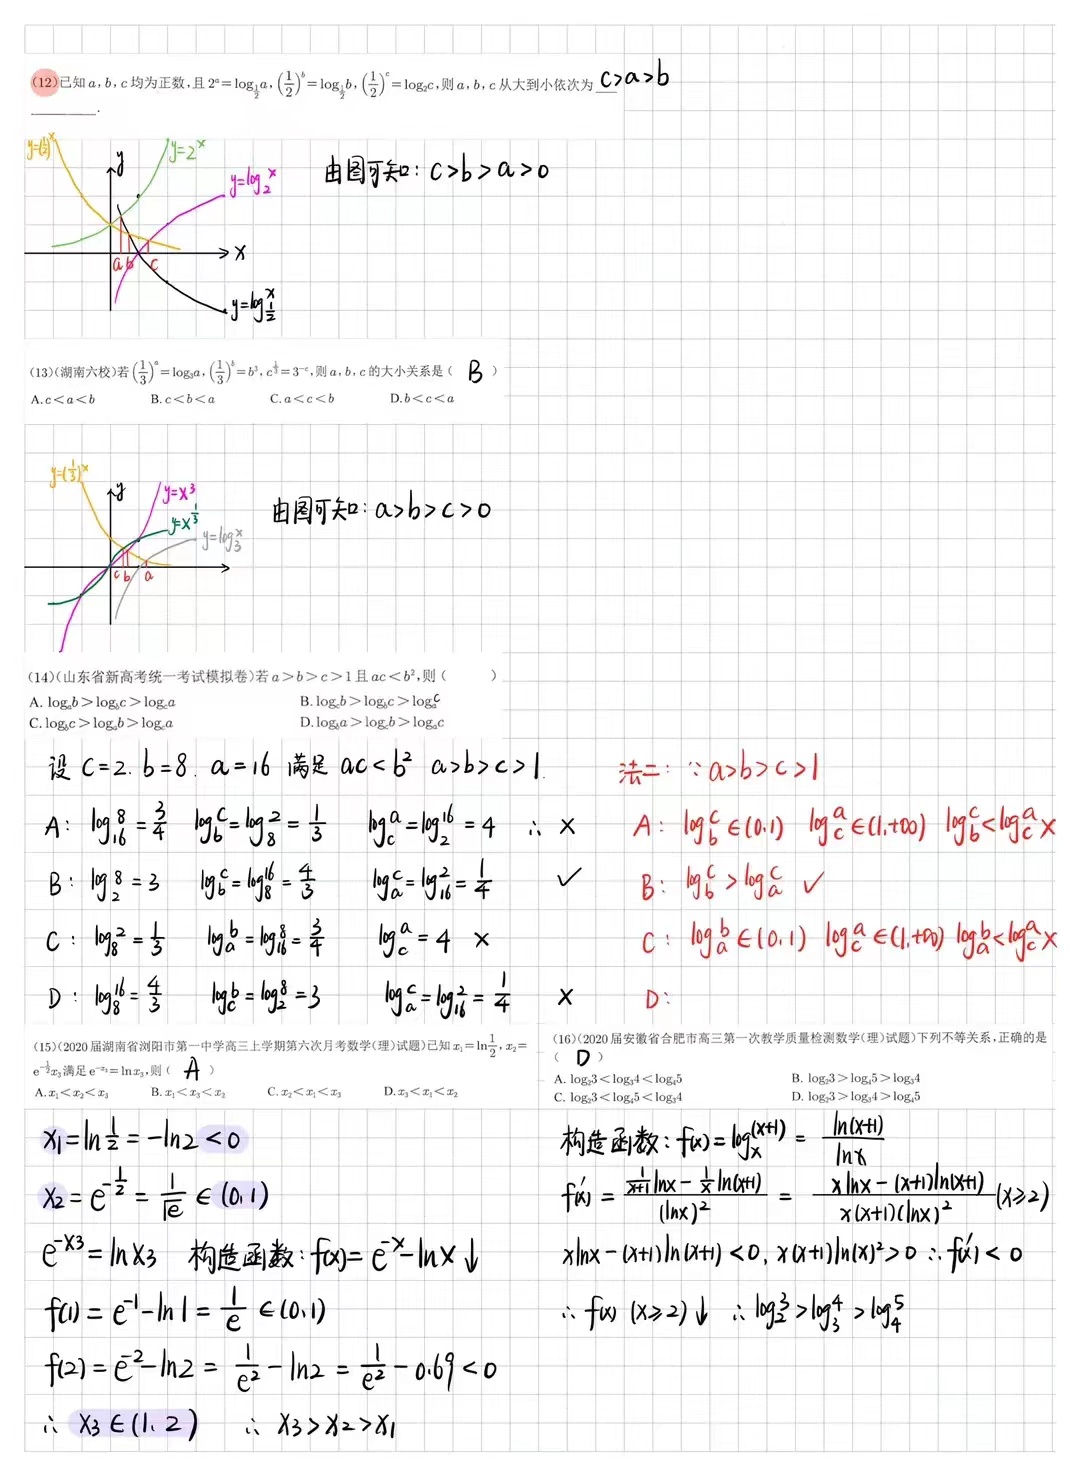 (12)已知 a, b, c 均为正数,且 2^a=log_{1/2}a, (1/2)^b=log_{1/2}b, (1/2)^c=log₂c,则 a, b, c 从大到小依次为 c>a>b
________.
y=(1/2)^x
y=2^x
y
y=log₂^x
由图可知: c>b>a>0
x
a b c
y=log_{1/2}^x
(13)(湖南六校)若(1/3)^a=log₃a, (1/3)^b=b³, c^{1/3}=3^{-c},则 a, b, c 的大小关系是( B )
A. c<a<b B. c<b<a C. a<c<b D. b<c<a
y=(1/3)^x
y
y=x³
y=x^{1/3}
y=log₃^x
由图可知: a>b>c>0
c b a
(14)(山东省新高考统一考试模拟卷)若 a>b>c>1 且 ac<b²,则( )
A. log_a b>log_b c>log_c a B. log_c b>log_b c>log_a^c
C. log_b c>log_a b>log_c a D. log_b a>log_c b>log_a c
设 c=2. b=8. a=16 满足 ac<b² a>b>c>1.
A: log_{16}^8=3/4 log_b^c=log_8^2=1/3 log_c^a=log_2^{16}=4 ∴ ×
B: log_2^8=3 log_b^c=log_8^{16}=4/3 log_a^c=log_{16}^2=1/4 ✓
C: log_8^2=1/3 log_a^b=log_{16}^8=3/4 log_c^a=4 ×
D: log_8^{16}=4/3 log_c^b=log_2^8=3 log_a^c=log_{16}^2=1/4 ×
法二: ∵ a>b>c>1
A: log_b^c∈(0,1) log_c^a∈(1,+∞) log_b^c<log_c^a ×
B: log_b^c>log_a^c ✓
C: log_a^b∈(0,1) log_c^a∈(1,+∞) log_a^b<log_c^a ×
D:
(15)(2020届湖南省浏阳市第一中学高三上学期第六次月考数学(理)试题)已知 x₁=ln1/2, x₂=
e^{-1/2} x₃满足 e^{-x₃}=ln x₃,则( A )
A. x₁<x₂<x₃ B. x₁<x₃<x₂ C. x₂<x₁<x₃ D. x₃<x₁<x₂
x₁=ln1/2=-ln2<0
x₂=e^{-1/2}=1/√e∈(0,1)
e^{-x₃}=lnx₃ 构造函数: f(x)=e^{-x}-lnx↓
f(1)=e^{-1}-ln1=1/e∈(0,1)
f(2)=e^{-2}-ln2=1/e²-ln2=1/e²-0.69<0
∴ x₃∈(1,2) ∴ x₃>x₂>x₁
(16)(2020届安徽省合肥市高三第一次教学质量检测数学(理)试题)下列不等关系,正确的是
( D )
A. log₂3<log₃4<log₄5 B. log₂3>log₄5>log₃4
C. log₂3<log₄5<log₃4 D. log₂3>log₃4>log₄5
构造函数: f(x)=log_x^{(x+1)}=ln(x+1)/lnx
f'(x)=(1/(x+1) lnx-1/x ln(x+1))/(lnx)²=(xlnx-(x+1)ln(x+1))/(x(x+1)(lnx)²) (x≥2)
xlnx-(x+1)ln(x+1)<0, x(x+1)ln(x)²>0 ∴f'(x)<0
∴ f(x) (x≥2)↓ ∴ log_2^3>log_3^4>log_4^5